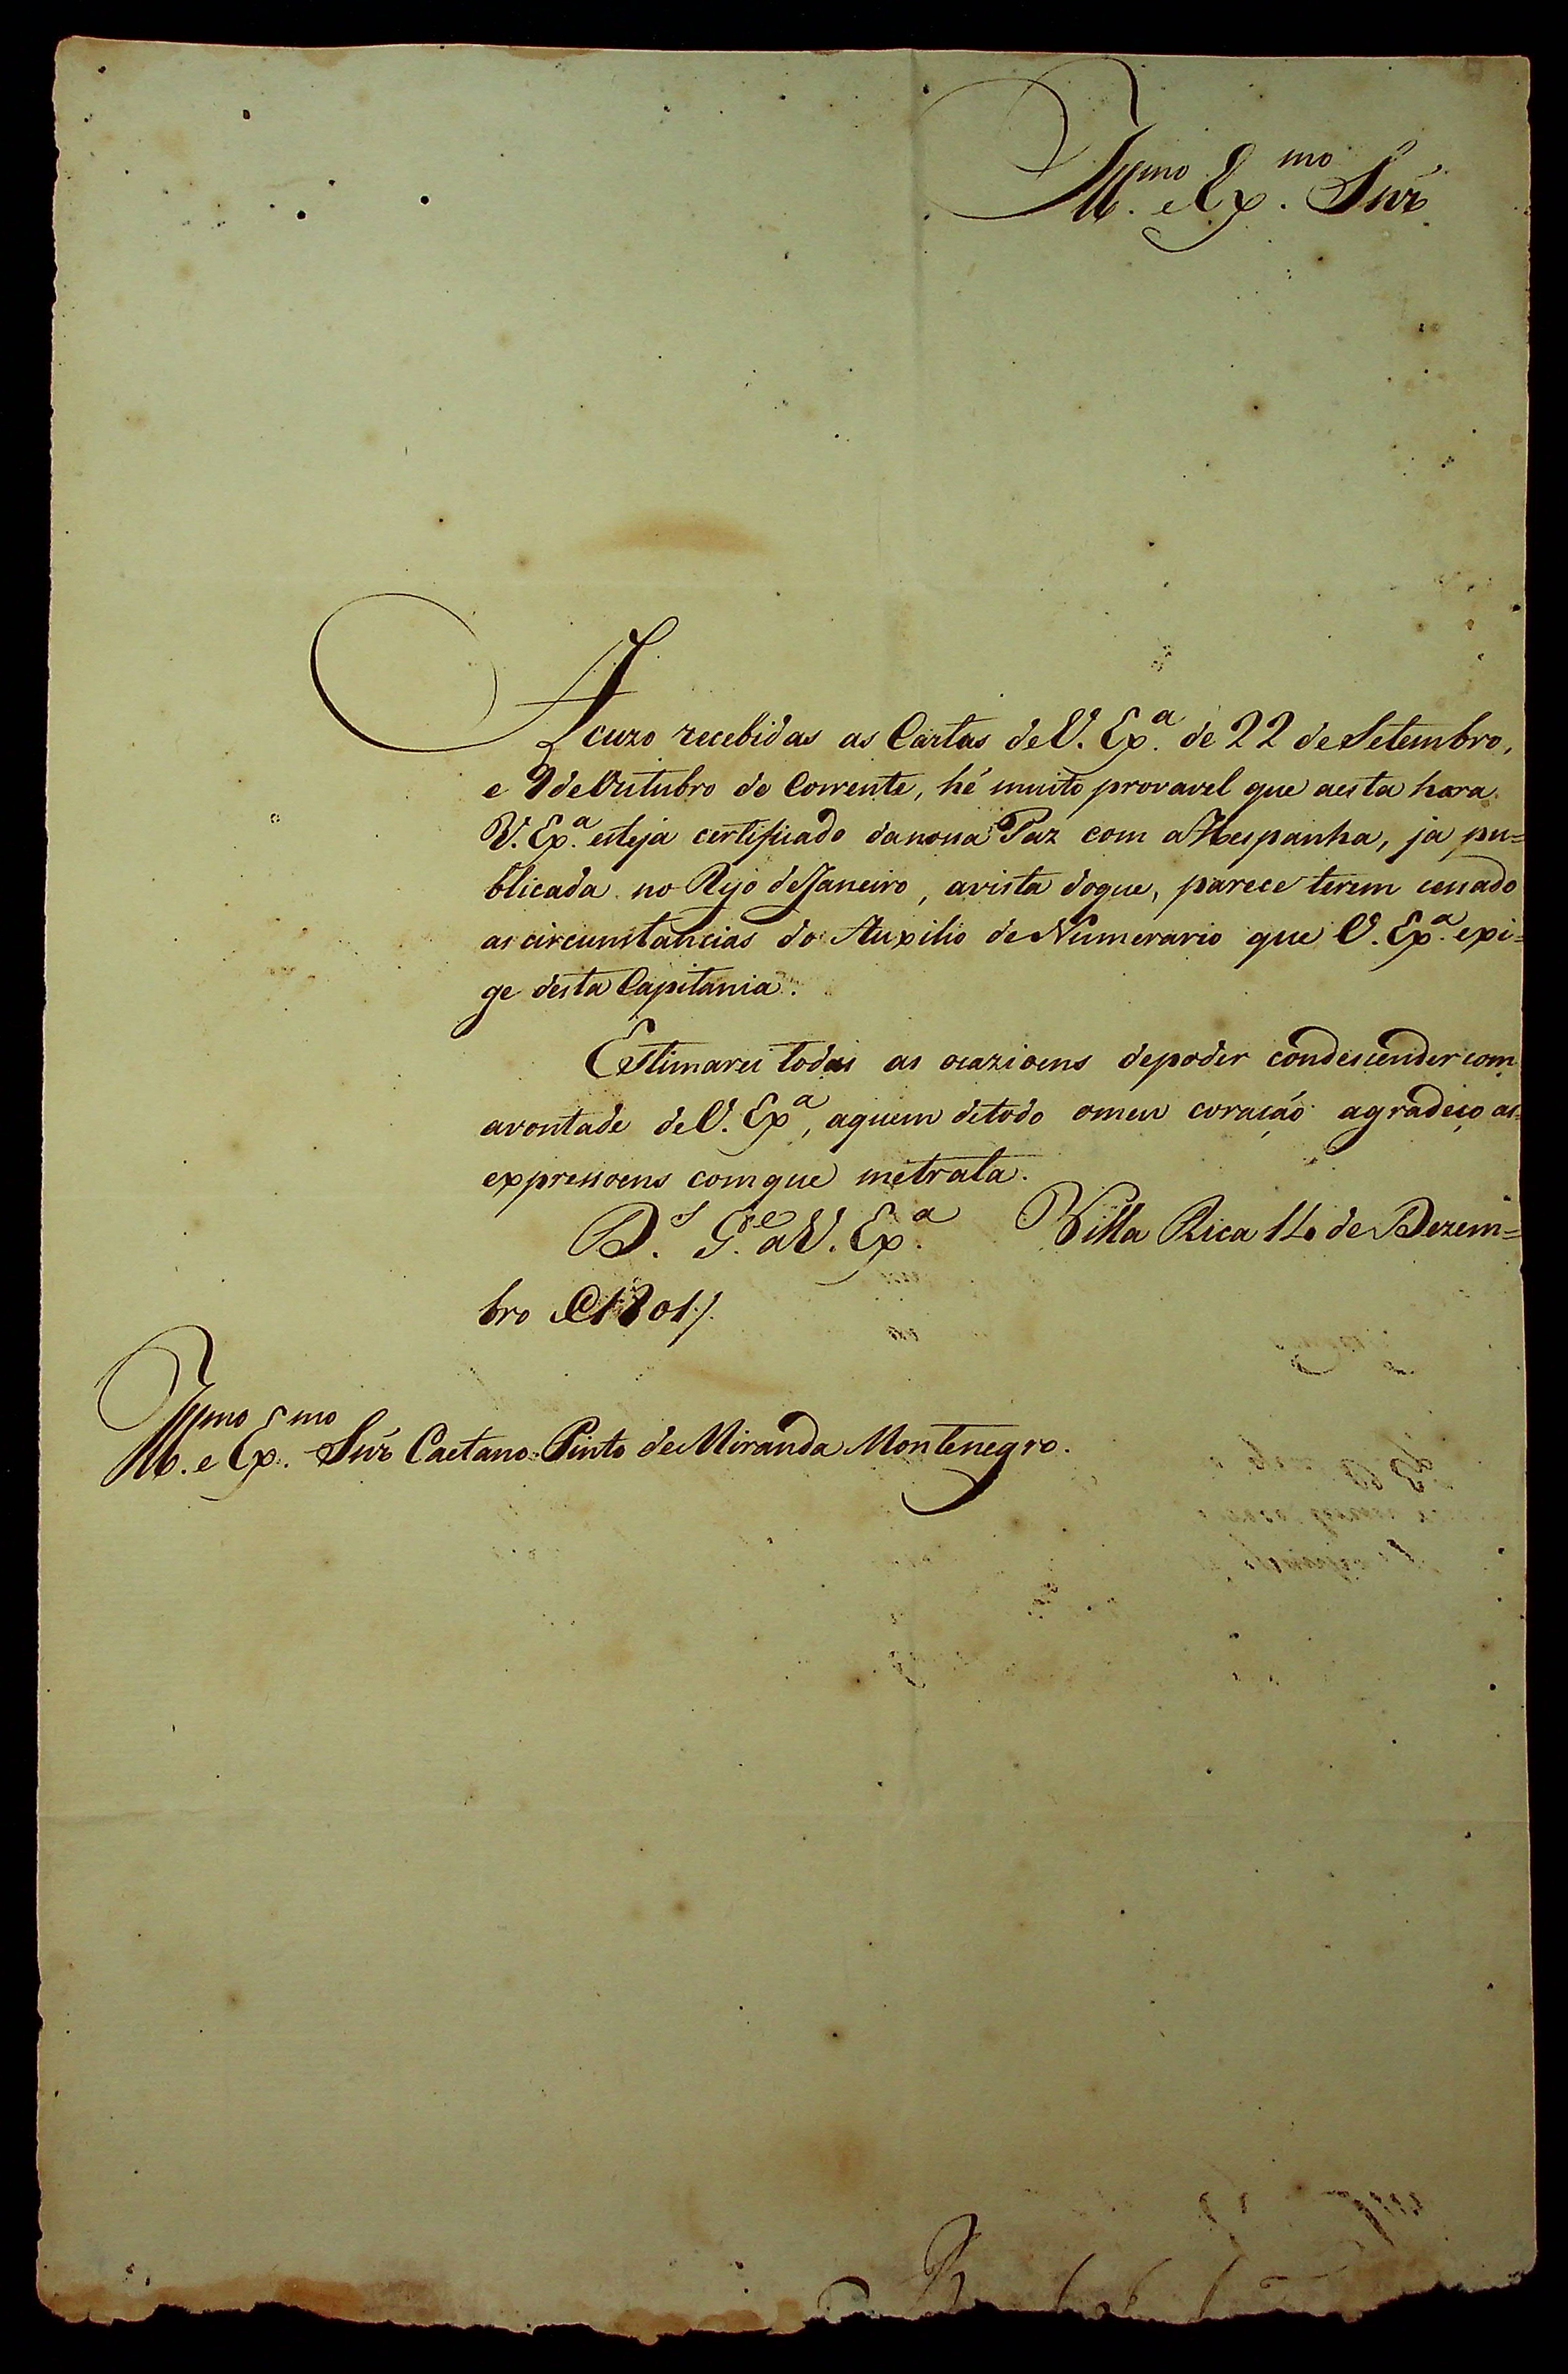 Ill.mo e Ex.mo Snr̃
Acuzo recebidas as Cartas de V. Ex.a de 22 de Setembro,
e 9 de Outubro do Corrente, hé muito provavel que aesta hora
V. Ex.a esteja certificado danossa Paz com aHespanha, ja pu=
blicada no Rijo deJaneiro, avista doque, parece terem cessado
as circunstancias do Auxilio de Numerario que V. Ex.a exi=
ge desta Capitania.
Estimarei todas as ocazioens depoder condescender com
avontade de V. Ex.a, aquem detodo omeu coração agradeço as
expressoens comque metrata.
D.s G.e a V. Ex.a Villa Rica 14 de Dezem=
bro de 1801.
Ill.mo e Ex.mo Snr̃ Caetano Pinto de Miranda Montenegro.